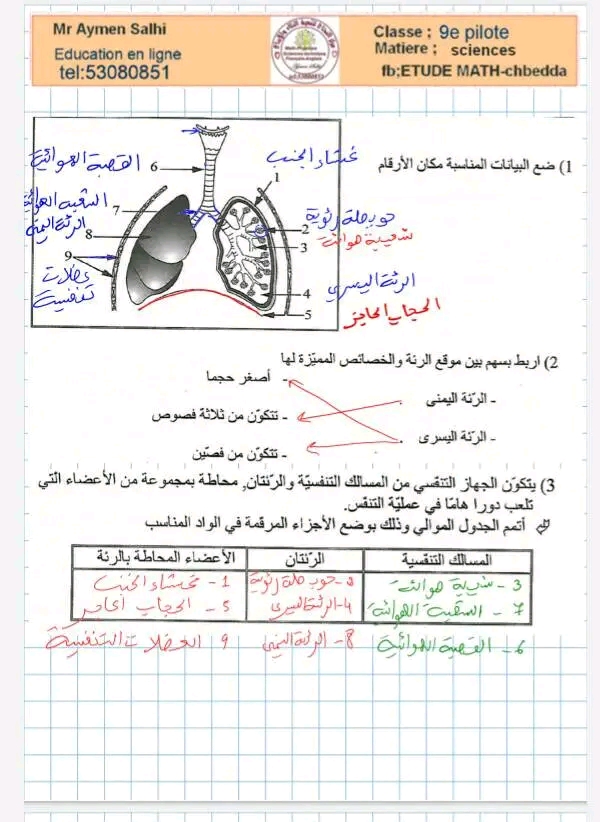 Mr Aymen Salhi
Education en ligne
tel:53080851
Classe ; 9e pilote
Matiere ; sciences
fb;ETUDE MATH-chbedda
1) ضع البيانات المناسبة مكان الأرقام
غشاء الجنب
1
حويصلة رئوية
2
شعيبة هوائية
3
الرئة اليسرى
4
الحجاب الحاجز
5
القصبة الهوائية
6
الشعبة الهوائية
7
الرئة اليمنى
8
9
عضلات
تنفسية
2) اربط بسهم بين موقع الرئة والخصائص المميّزة لها
- أصغر حجما
- الرّئة اليمنى
- تتكوّن من ثلاثة فصوص
- الرّئة اليسرى
- تتكوّن من فصّين
3) يتكوّن الجهاز التنفسي من المسالك التنفسيّة والرّئتان, محاطة بمجموعة من الأعضاء الّتي
تلعب دورا هامّا في عمليّة التنفّس.
أتمم الجدول الموالي وذلك بوضع الأجزاء المرقمة في الواد المناسب
المسالك التنفسية | الرّئتان | الأعضاء المحاطة بالرئة
3 - شعيبة هوائية | 2 - حويصلة رئوية | 1 - غشاء الجنب
7 - الشعبة الهوائية | 4 - الرئة اليسرى | 5 - الحجاب الحاجز
6 - القصبة الهوائية | 8 - الرئة اليمنى | 9 العضلات التنفسية